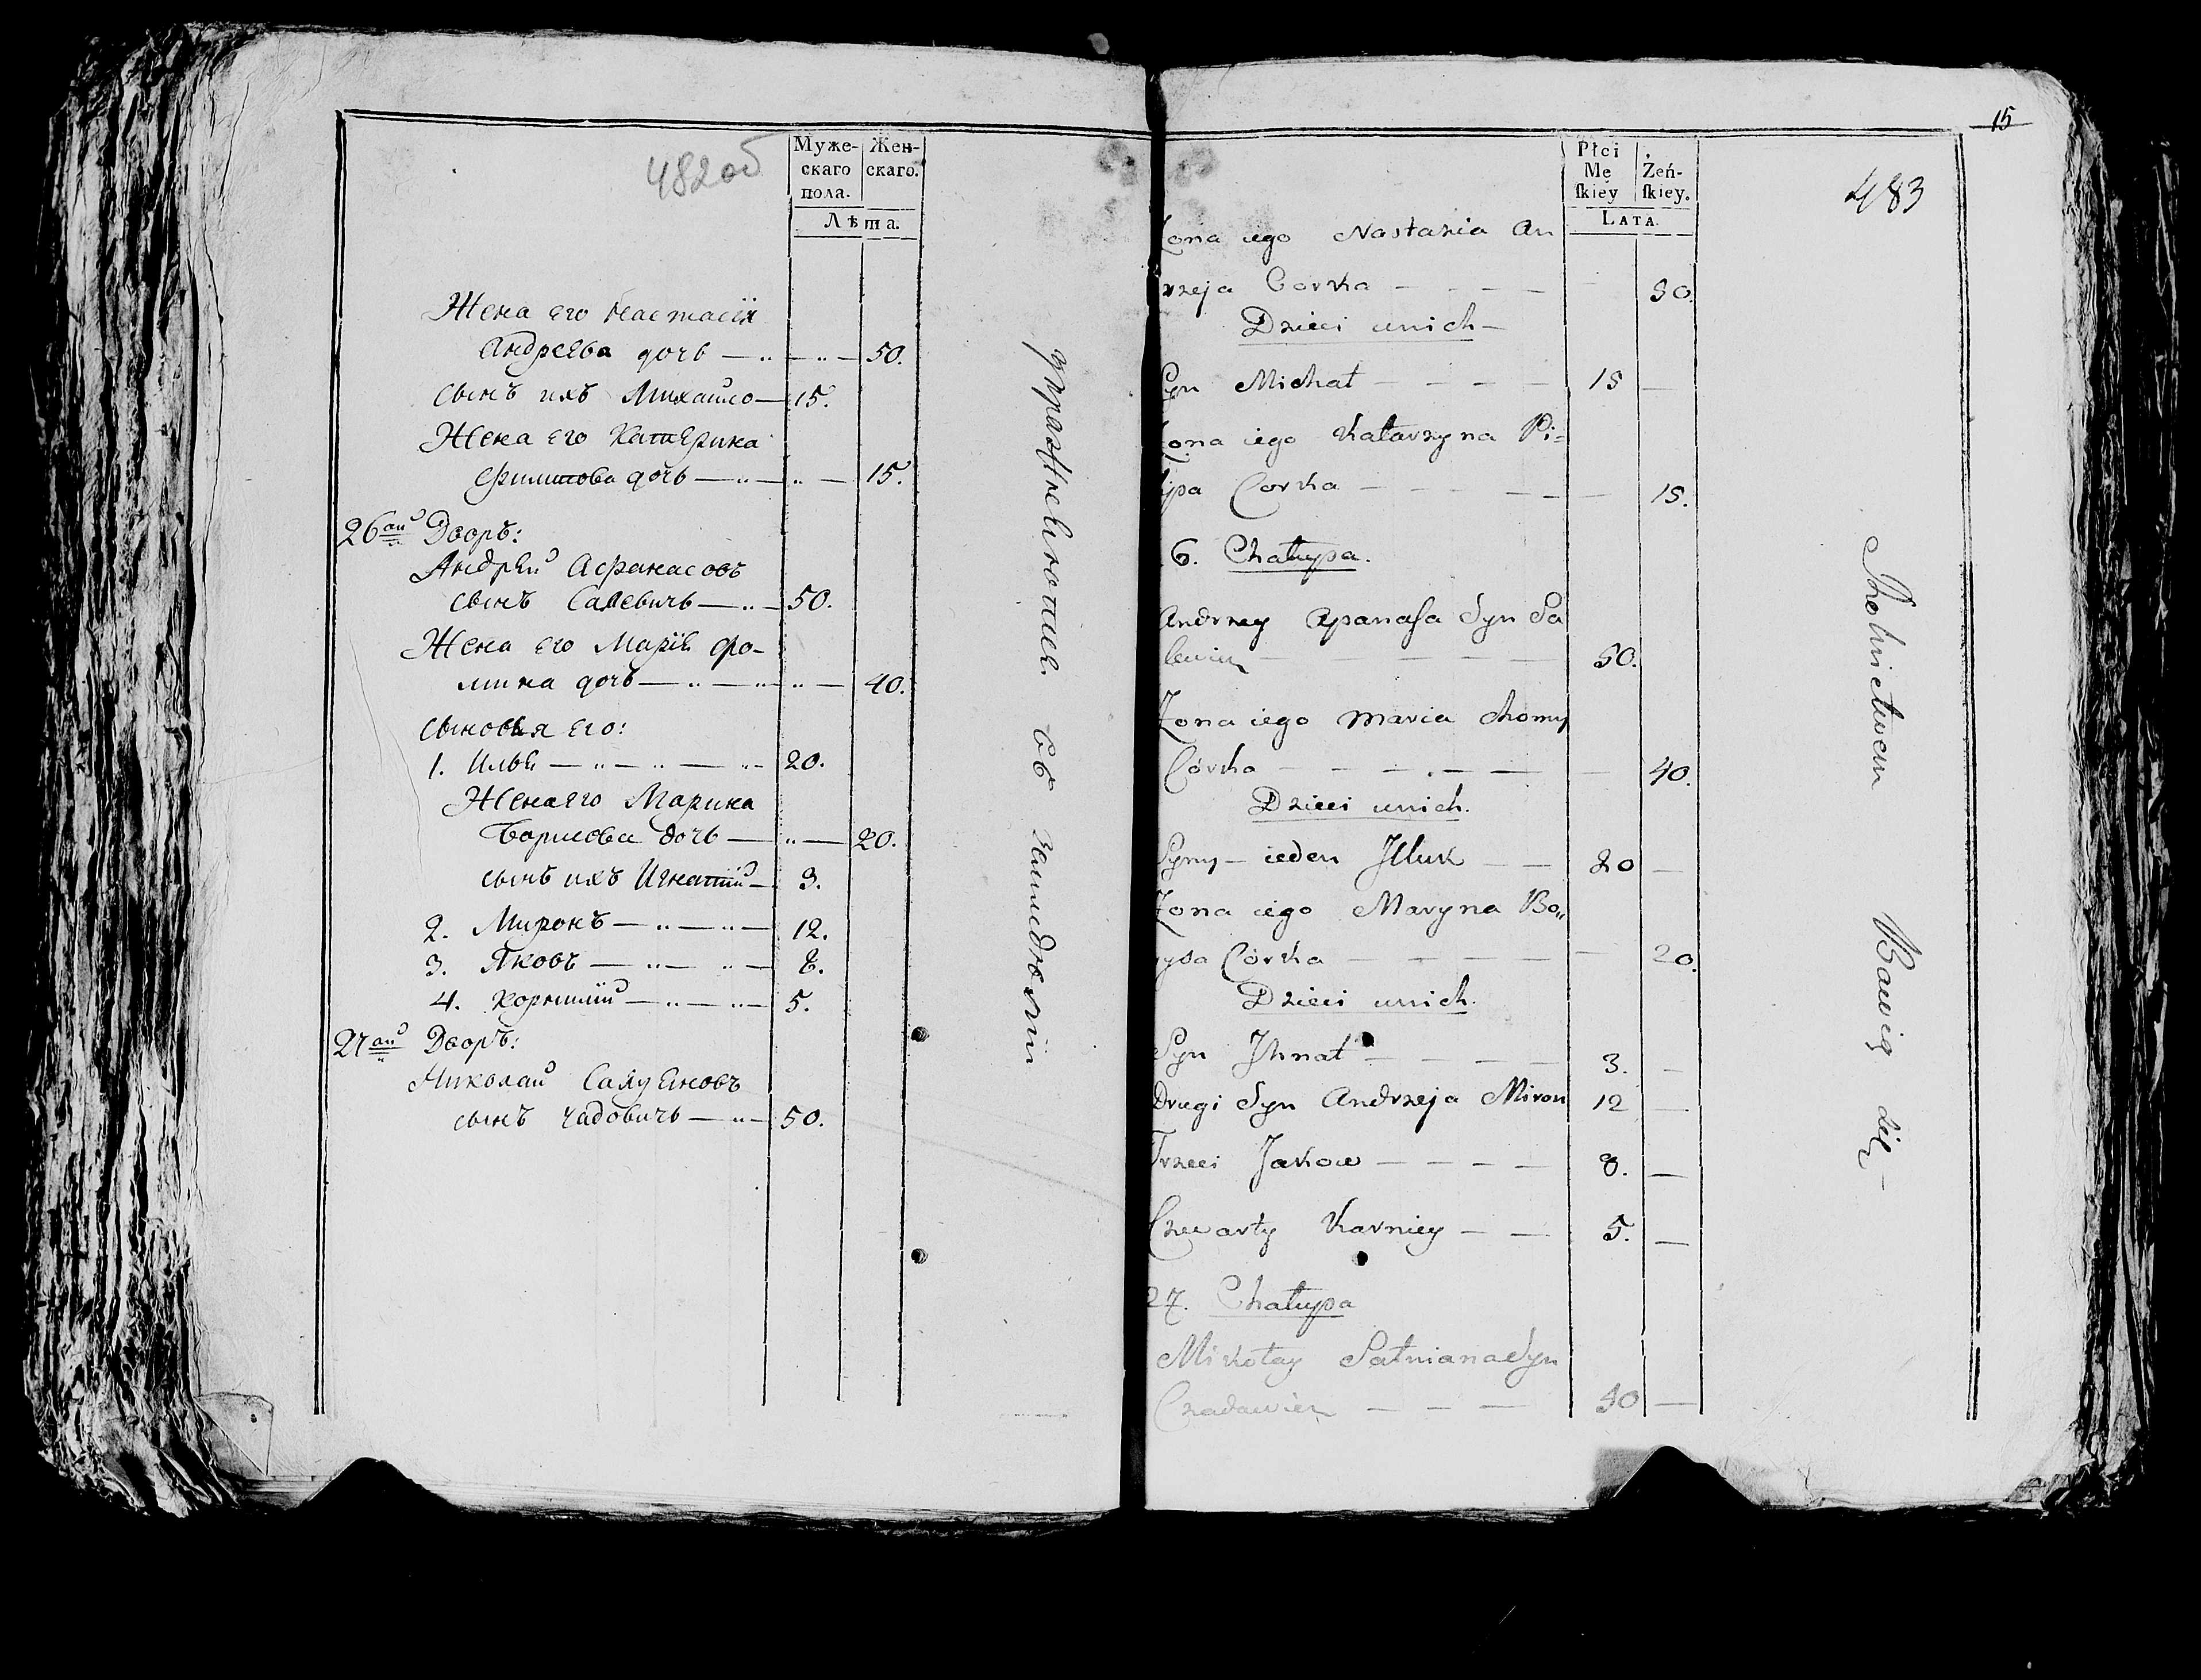 482об
Муже-
скаго
пола.
Жен-
скаго.
Лѣта.
Жена его Настасія
Андреева дочь — 50.
сынъ ихъ Михайло — 15.
Жена его Катерина
Филипова дочь — 15.
26ай Дворъ:
Андрей Афанасовъ
сынъ Салевичь — 50.
Жена его Марія Фо-
мина дочь — 40.
сыновья его:
1. Илья — 20.
Жена его Марина
Борисова дочь — 20.
сынъ ихъ Игнатій — 3.
2. Миронъ — 12.
3. Яковъ — 8.
4. Корнилій — 5.
27ай Дворъ:
Николай
сынъ Чадовичь — 50.
упражняются въ земледѣліи
15
483
Płci
Mę
ſkiey
Żeń-
ſkiey.
LATA.
Żona iego Nastazia An
rzeja Corka — 50.
Dzieci unich —
Syn Michał — 15 —
Żona iego Katarzyna Pi=
lipa Corka — 15.
6. Chałupa.
Andrzey Apanaſa Syn Sa
lewicz — 50.
Żona iego Maria Chomy
Córka — 40.
Dzieci unich.
Syny — ieden Illuk — 20 —
Żona iego Maryna Bo„
rysa Córka — 20.
Dzieci unich.
Syn Ihnat — 3. —
Drugi Syn Andrzeja Miron 12 —
Trzeci Jakow — 8. —
Czwarty Karniey — 5. —
27. Chałupa
Mikołay Syn
Czadawicz — 50 —
Rolnictwem Bawią się —